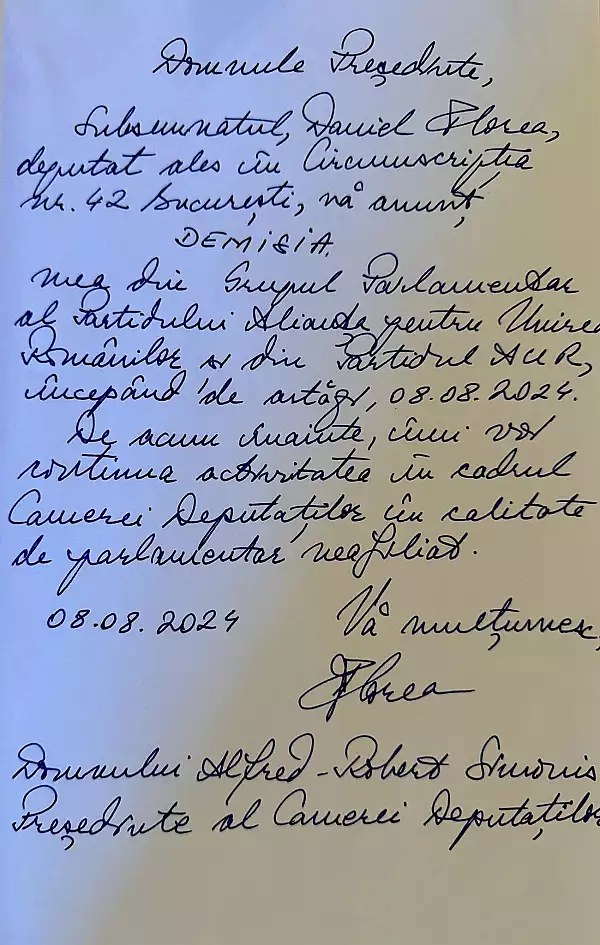 Domnule Președinte,
Subsemnatul, Daniel Florea,
deputat ales în Circumscripția
nr. 42 București, vă anunț
DEMISIA
mea din Grupul Parlamentar
al Partidului Alianța pentru Unirea
Românilor și din Partidul AUR,
începând de astăzi, 08.08.2024.
De acum înainte, îmi voi
continua activitatea în cadrul
Camerei Deputaților în calitate
de parlamentar neafiliat.
08.08.2024 Vă mulțumesc,
Florea
Domnului Alfred-Robert Simonis
Președinte al Camerei Deputaților